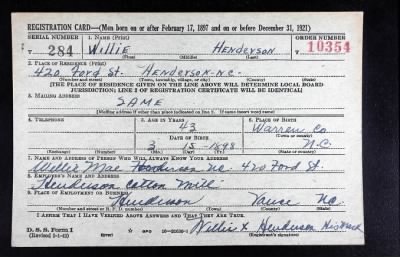 REGISTRATION CARD—(Men born on or after February 17, 1897 and on or before December 31, 1921)
SERIAL NUMBER 1. NAME (Print) ORDER NUMBER
T 284 Willie Henderson 10354
(First) (Middle) (Last)
2. PLACE OF RESIDENCE (Print)
420 Ford St. Henderson N.C.
(Number and street) (Town, township, village, or city) (County) (State)
[THE PLACE OF RESIDENCE GIVEN ON THE LINE ABOVE WILL DETERMINE LOCAL BOARD
JURISDICTION; LINE 2 OF REGISTRATION CERTIFICATE WILL BE IDENTICAL]
3. MAILING ADDRESS
SAME
[Mailing address if other than place indicated on line 2. If same insert word same]
4. TELEPHONE 5. AGE IN YEARS 6. PLACE OF BIRTH
43 Warren Co
DATE OF BIRTH (Town or county)
3 15 1898 N.C.
(Exchange) (Number) (Mo.) (Day) (Yr.) (State or country)
7. NAME AND ADDRESS OF PERSON WHO WILL ALWAYS KNOW YOUR ADDRESS
Willie Mae Henderson N.C. 420 Ford St.
8. EMPLOYER'S NAME AND ADDRESS
Henderson Cotton Mill
9. PLACE OF EMPLOYMENT OR BUSINESS
Henderson Vance N.C.
(Number and street or R. F. D. number) (Town) (County) (State)
I AFFIRM THAT I HAVE VERIFIED ABOVE ANSWERS AND THAT THEY ARE TRUE.
D. S. S. Form 1 GPO Willie X Henderson His Mark
(Revised 1-1-42) (Registrant's signature)